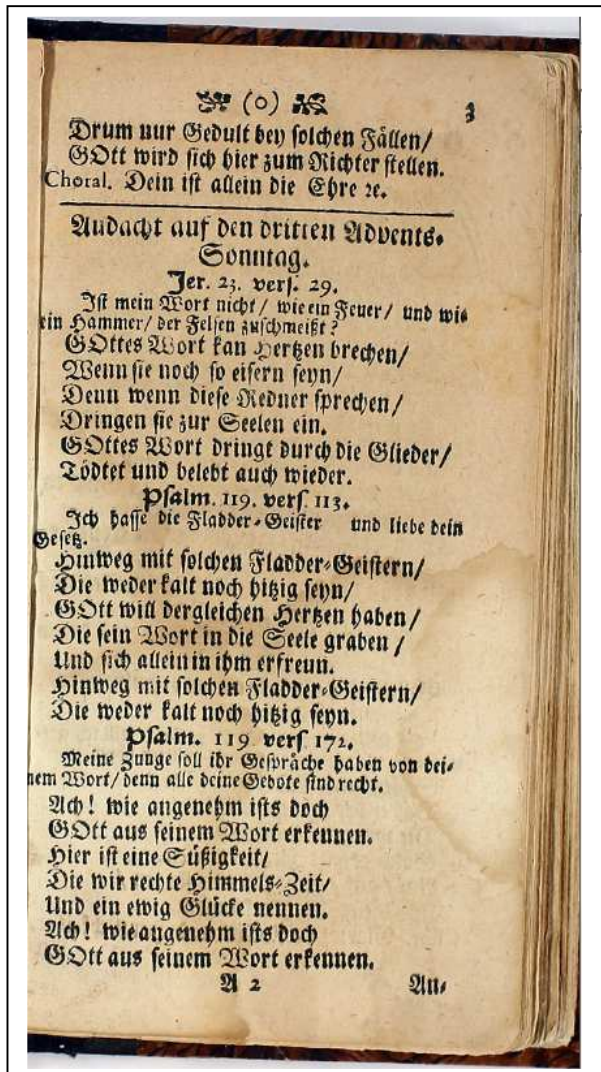 (o) 3
Drum nur Gedult bey solchen Fällen/
GOtt wird sich hier zum Richter stellen.
Choral. Dein ist allein die Ehre ꝛc.
Andacht auf den dritten Advents-
Sonntag.
Jer. 23. vers. 29.
Ist mein Wort nicht/ wie ein Feuer/ und wie
ein Hammer/ der Felsen zuschmeißt?
GOttes Wort kan Hertzen brechen/
Wenn sie noch so eisern seyn/
Denn wenn diese Redner sprechen/
Dringen sie zur Seelen ein.
GOttes Wort dringt durch die Glieder/
Tödtet und belebt auch wieder.
Psalm. 119. vers 113.
Ich hasse die Fladder-Geister und liebe dein
Gesetz.
Hinweg mit solchen Fladder-Geistern/
Die weder kalt noch hitzig seyn/
GOtt will dergleichen Hertzen haben/
Die sein Wort in die Seele graben/
Und sich allein in ihm erfreun.
Hinweg mit solchen Fladder-Geistern/
Die weder kalt noch hitzig seyn.
Psalm. 119 vers 172.
Meine Zunge soll ihr Gespräche haben von dei-
nem Wort/ denn alle deine Gebote sind recht.
Ach! wie angenehm ists doch
GOtt aus seinem Wort erkennen.
Hier ist eine Süßigkeit/
Die wir rechte Himmels-Zeit/
Und ein ewig Glücke nennen.
Ach! wie angenehm ists doch
GOtt aus seinem Wort erkennen.
A 2 An-